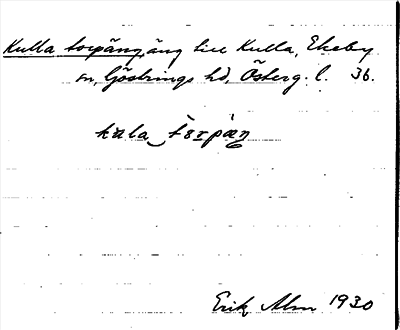 Kulla torpäng, äng till Kulla, Ekeby
sn, Göstrings hd, Österg. l. 36.
kula tɔrpæŋ
Erik Alm 1930